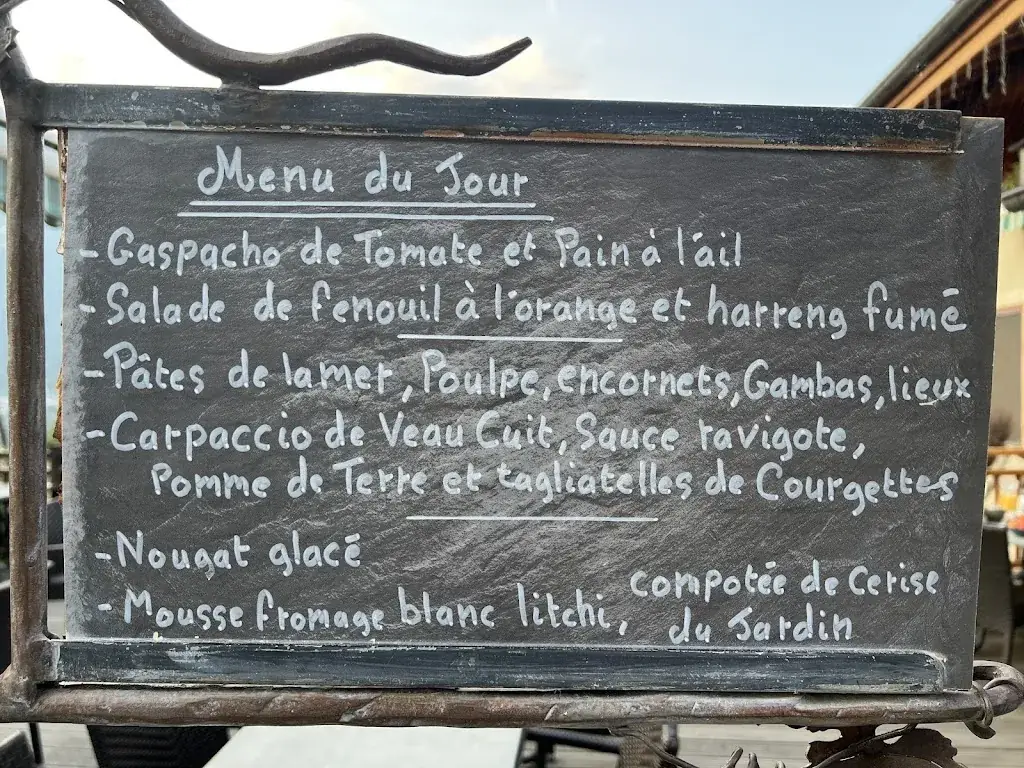 Menu du Jour
- Gaspacho de Tomate et Pain à l'ail
- Salade de fenouil à l'orange et harreng fumé
- Pâtes de la mer, Poulpe, encornets, Gambas, lieux
- Carpaccio de Veau Cuit, Sauce ravigote,
Pomme de Terre et tagliatelles de Courgettes
- Nougat glacé
- Mousse fromage blanc litchi, compotée de Cerise
du Jardin